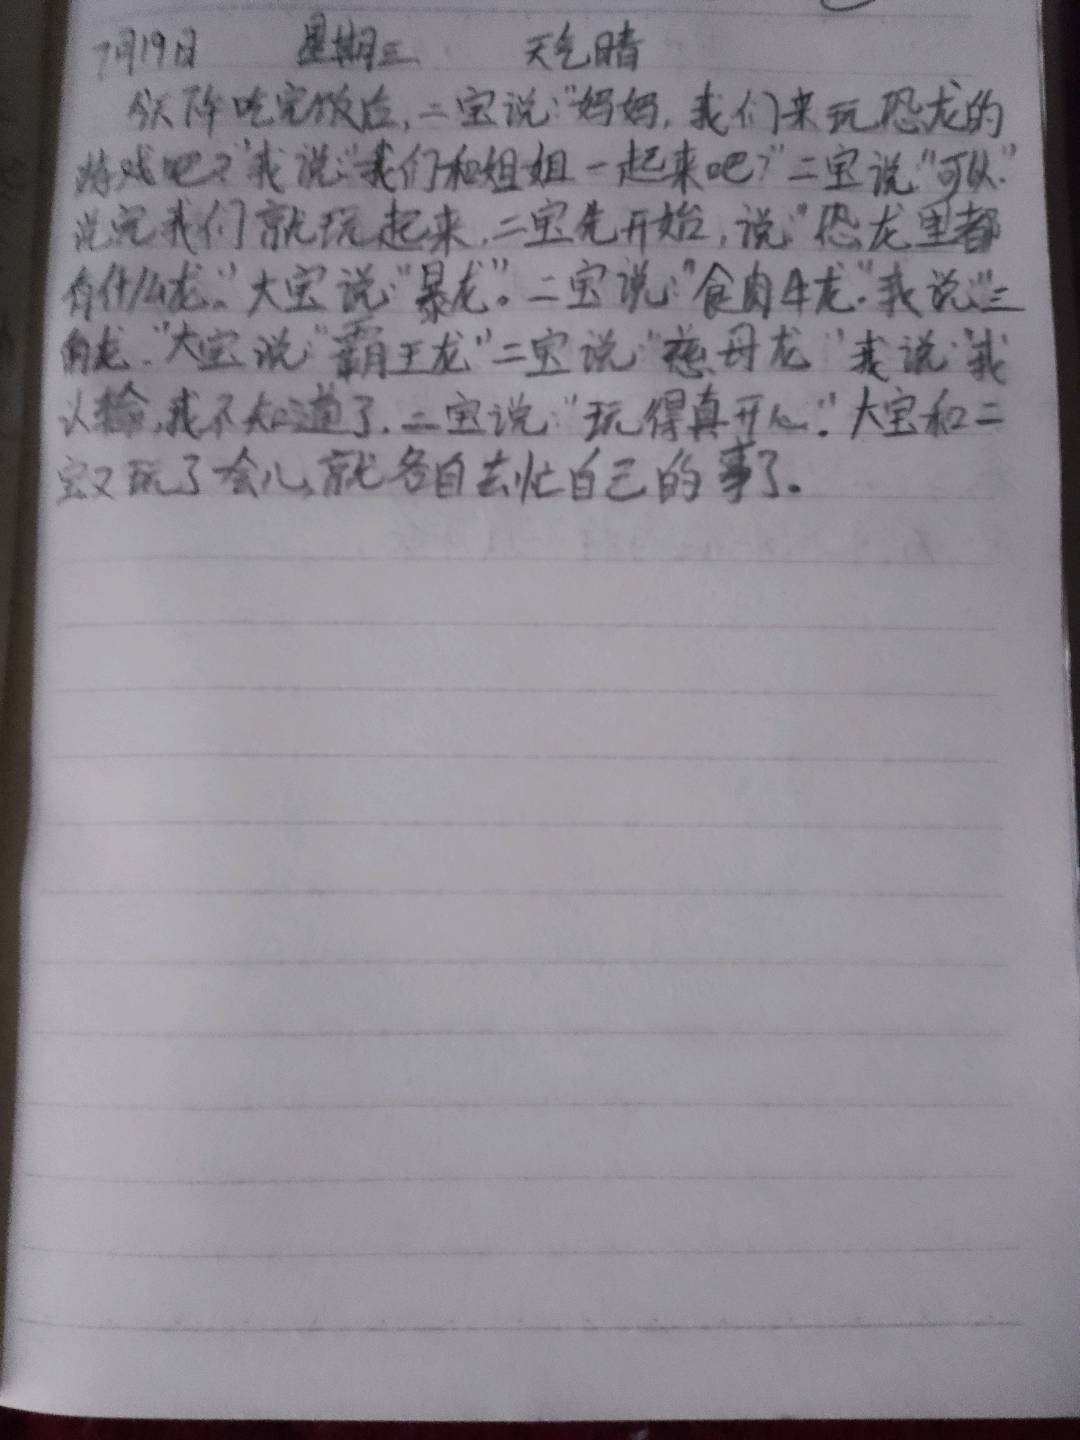 7月19日 星期三 天气晴
今天阵吃完饭后,二宝说:"妈妈,我们来玩恐龙的
游戏吧?"我说:"我们和姐姐一起来吧?"二宝说"可以."
说完我们就玩起来,二宝先开始,说:"恐龙里都
有什么龙."大宝说:"暴龙"。二宝说:"食肉牛龙."我说:"三
角龙."大宝说:"霸王龙"二宝说:"慈母龙"我说:"我
认输,我不知道了.二宝说:"玩得真开心."大宝和二
宝又玩了会儿,就各自去忙自己的事了。